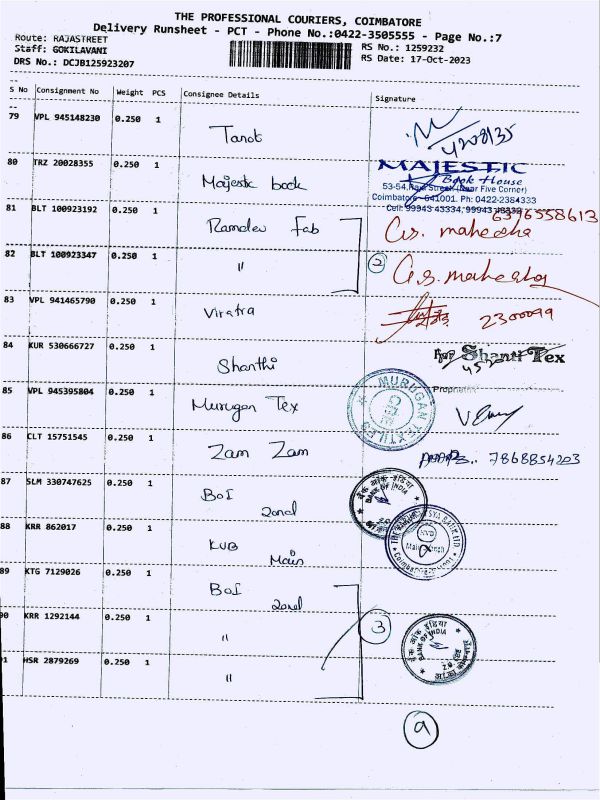 THE PROFESSIONAL COURIERS, COIMBATORE
Delivery Runsheet - PCT - Phone No.:0422-3505555 - Page No.:7
Route: RAJASTREET
Staff: GOKILAVANI
DRS No.: DCJB125923207
RS No.: 1259232
RS Date: 17-Oct-2023
S No Consignment No Weight PCS Consignee Details Signature
79 VPL 945148230 0.250 1 Tanot
80 TRZ 20028355 0.250 1 Majestic book
MAJESTIC
Book House
53-54, Park Street (Near Five Corner)
Coimbatore - 641001. Ph: 0422-2384333
Cell: 99943 43334, 99943
81 BLT 100923192 0.250 1 Ramdev Fab
6396558613
82 BLT 100923347 0.250 1 "
2
83 VPL 941465790 0.250 1 Viratra 2300099
84 KUR 530666727 0.250 1 Shanthi
For Shanti Tex
Proprietor
85 VPL 945395804 0.250 1 Murugan Tex
MURUGAN TEXTILES
86 CLT 15751545 0.250 1 Zam Zam 7868854203
87 SLM 330747625 0.250 1 BoI zonal
बैंक ऑफ इंडिया
BANK OF INDIA
88 KRR 862017 0.250 1 KVB Main
KVB
89 KTG 7129026 0.250 1 BoI zonal
90 KRR 1292144 0.250 1 "
3
बैंक ऑफ इंडिया
BANK OF INDIA
91 HSR 2879269 0.250 1 "
9